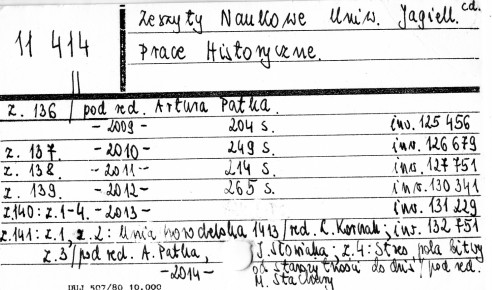 cd.
Zeszyty Naukowe Uniw. Jagiell.
11 414
Prace Historyczne.
z. 136 / pod red. Artura Patka.
-2009- 204 s. inw. 125 456
z. 137. -2010- 249 s. inw. 126 679
z. 138. -2011- 214 s. inw. 127 751
z. 139. -2012- 265 s. inw. 130 341
z. 140: z. 1-4. -2013- inw. 131 229
z. 141: z. 1, z. 2: Unia horodelska 1413 / red. ; inw. 132 751
z. 3 / pod red. A. Patka, J. ; z. 4: Stres pola bitwy
-2014- od starożytności do dnia / pod red.
M. Stachury
DUJ 507/80 10.000